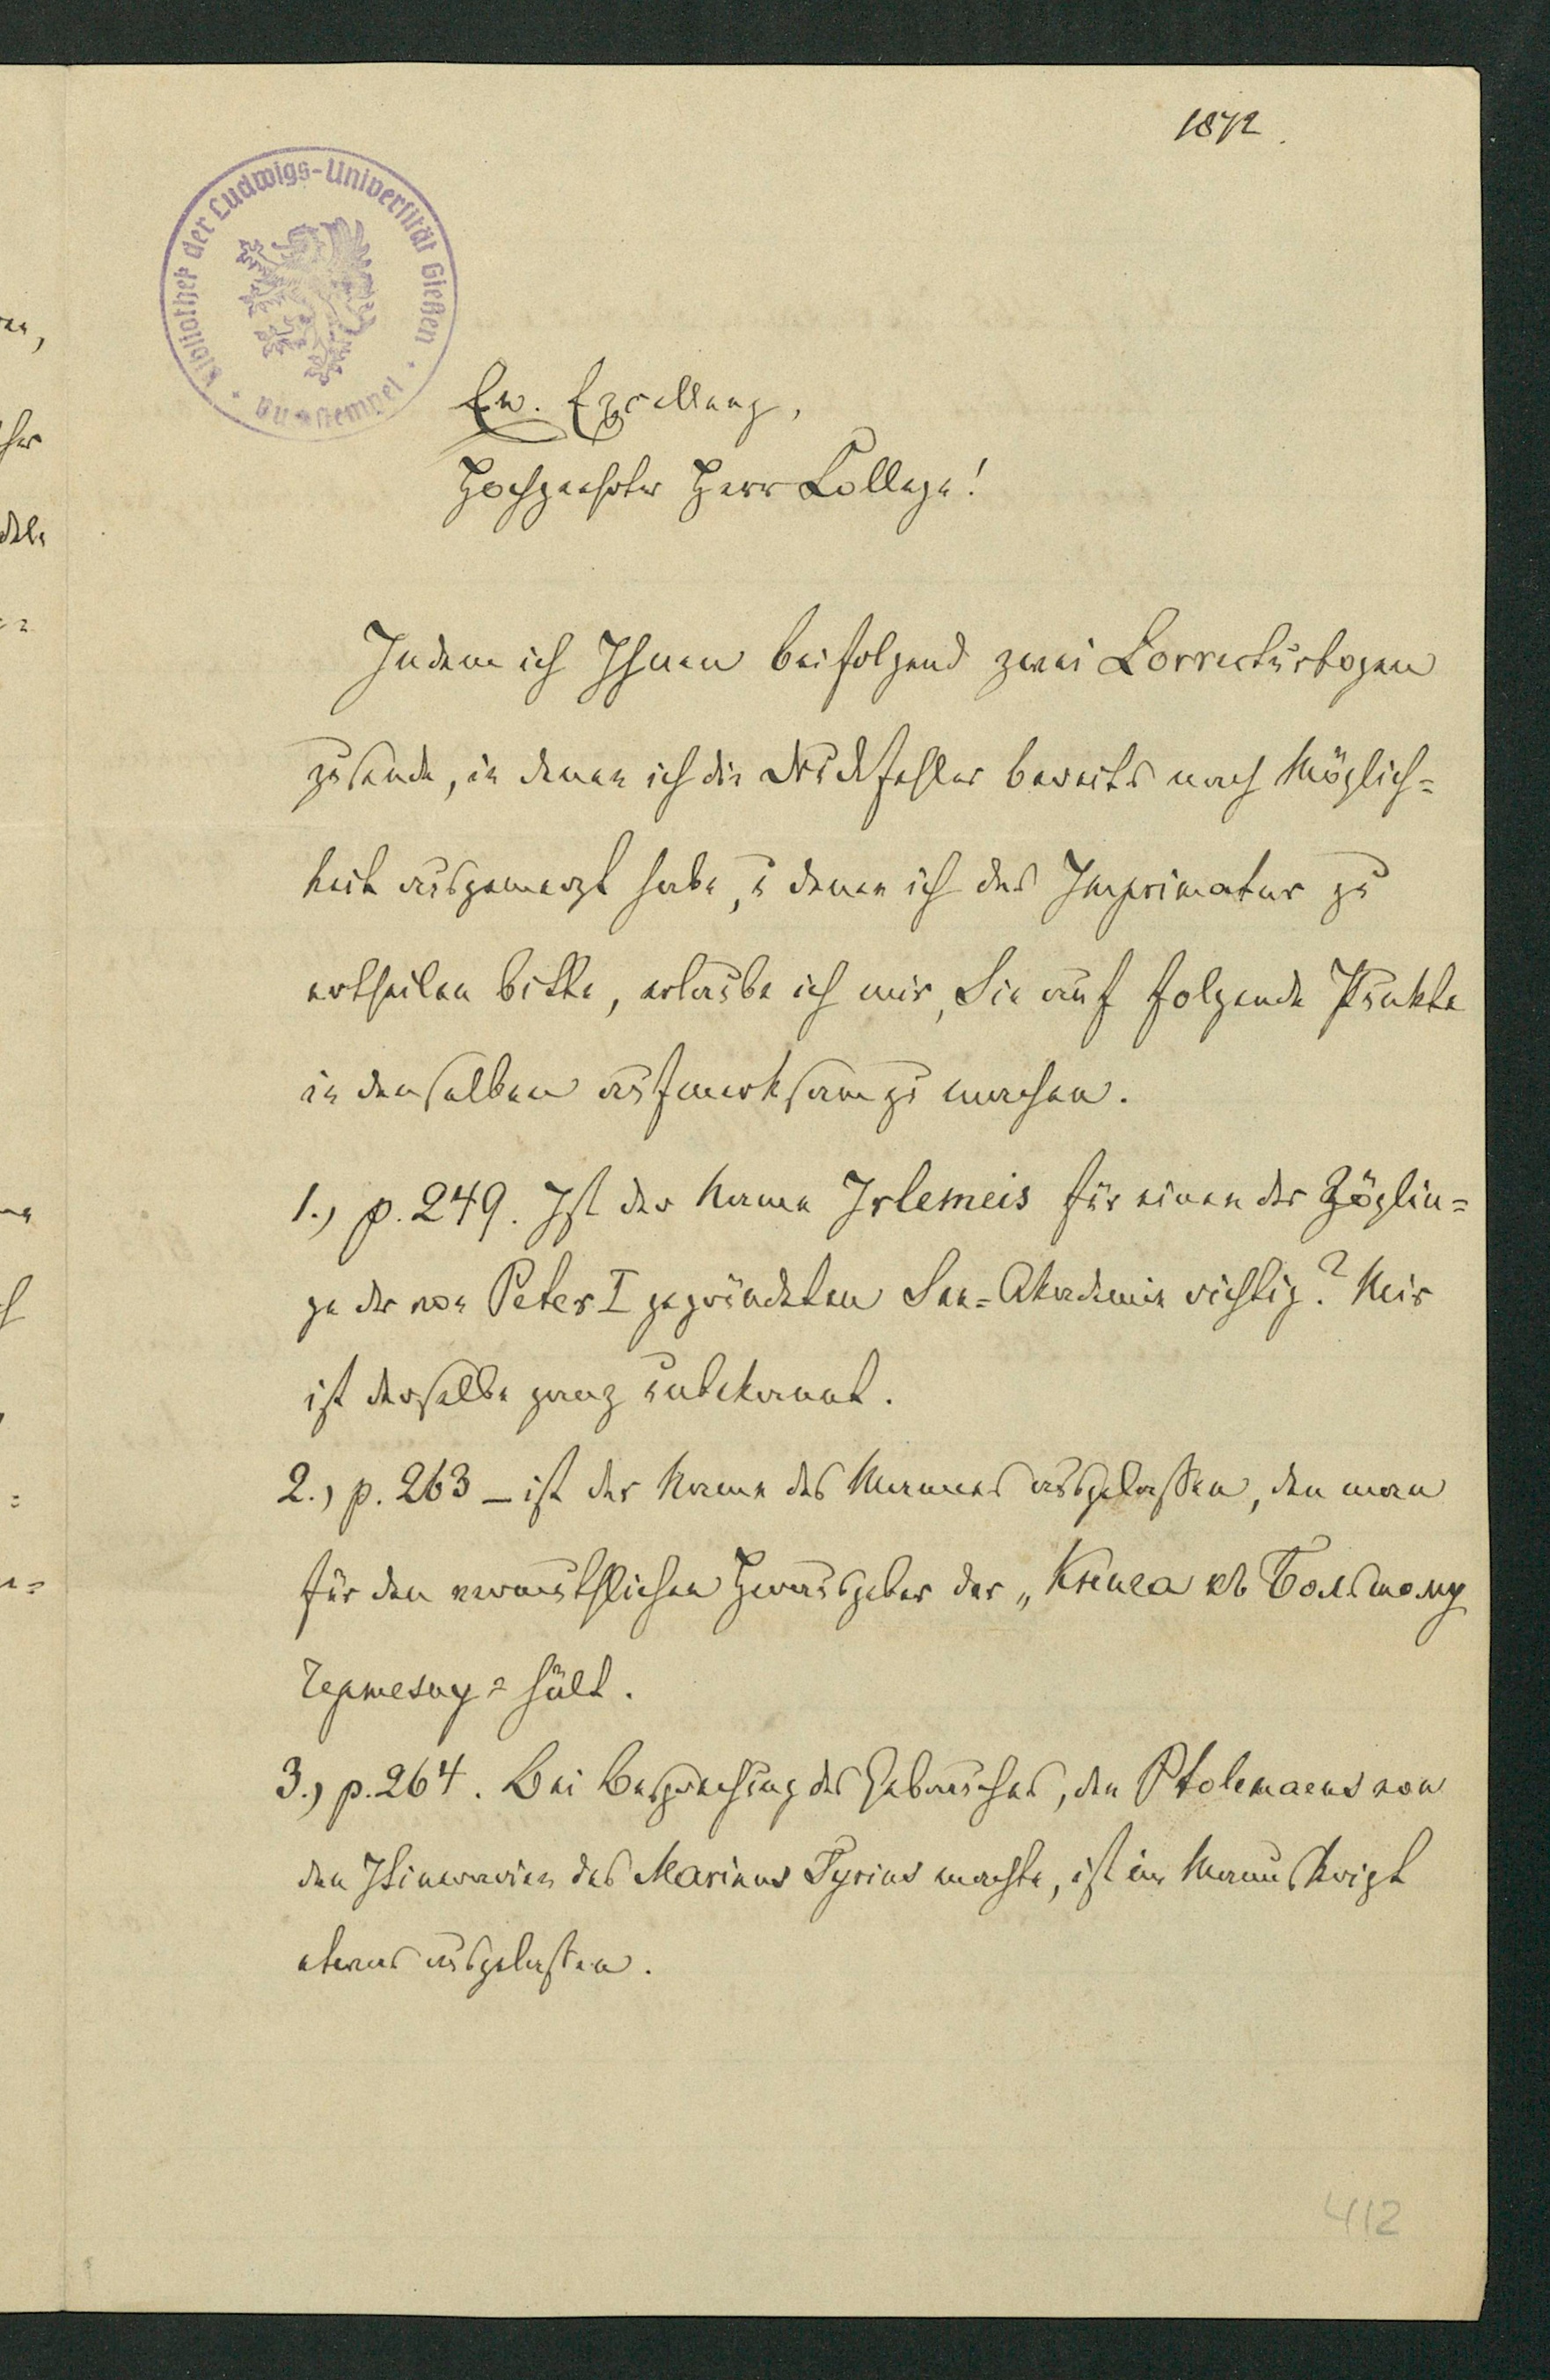 1872.
Bibliothek der Ludwigs-Universität Gießen
Ew. Excellenz,
Hochgeehrter Herr College!
Indem ich Ihnen beifolgend zwei Correcturbogen
zusende, in denen ich die Druckfehler bereits nach Möglich=
keit ausgemerzt habe, u denen ich das Imprimatur zu
ertheilen bitte, erlaube ich mir, Sie auf folgende Punkte
in denselben aufmerksam zu machen.
1.) p. 249. Ist der Name Irlemeis für einen der Zöglin=
ge der von Peter I gegründeten See=Akademie richtig? Mir
ist derselbe ganz unbekannt.
2.) p. 263 – ist der Name des Mannes ausgelassen, den man
für den vermuthlichen Herausgeber der „Книга къ Большому
Чертежу" hält.
3.) p. 264. Bei Besprechung des Gebrauches, den Ptolemaeus von
den Itinerarien des Marinus Tyrius machte, ist im Manuskript
etwas ausgelassen.
412